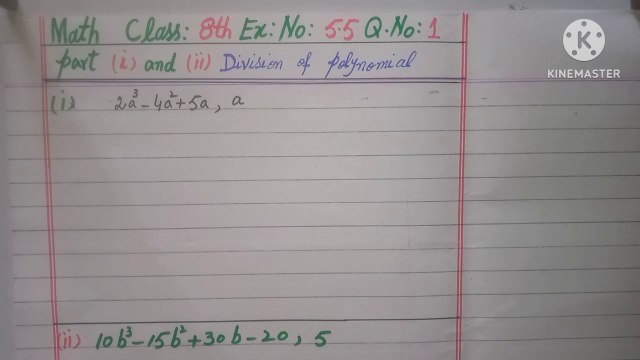 Math Class: 8th Ex: No: 5.5 Q.No: 1
part (i) and (ii) Division of polynomial
KINEMASTER
(i) 2a³-4a²+5a, a
(ii) 10b³-15b²+30b-20, 5